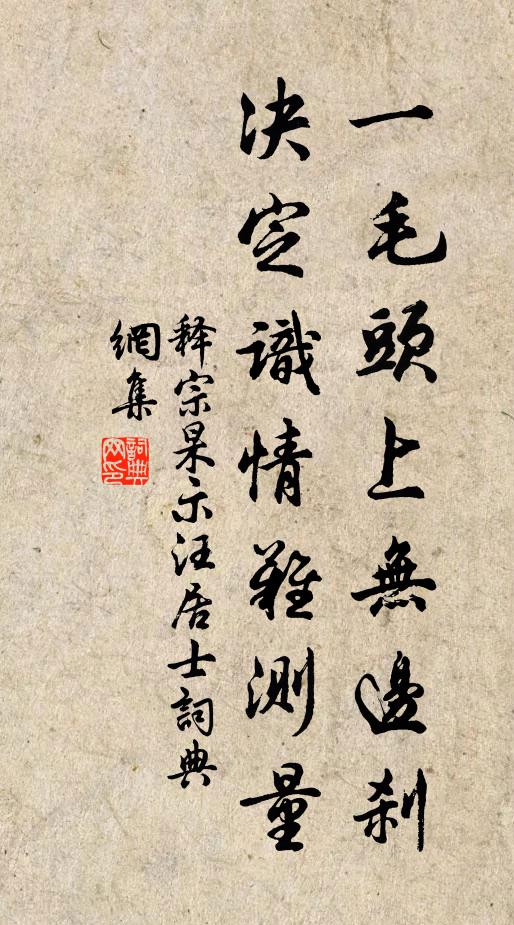 一毛頭上無邊刹
决定識情難測量
释宗杲示汪居士詞典
網集
詞典網印